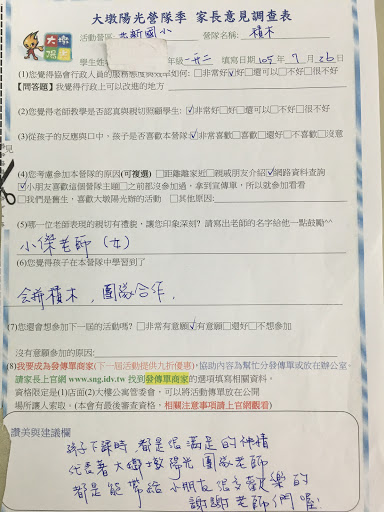 大墩陽光營隊季 家長意見調查表
大墩
陽光
活動營區: 北新國小 營隊名稱: 積木
學生姓 年級 二升三 填寫日期 105 年 7 月 26 日
(1)您覺得協會行政人員的服務態度與效率如何: □非常好☑好□還可以□不好□很不好
【問答題】我覺得行政上可以改進的地方
(2)您覺得老師教學是否認真與親切照顧學生: ☑非常好□好□還可以□不好□很不好
(3)從孩子的反應與口中，孩子是否喜歡本營隊☑非常喜歡□喜歡□還好□不喜歡□沒意
見
(4)您考慮參加本營隊的原因(可複選) □距離離家近□親戚朋友介紹☑網路資料查詢
☑小朋友喜歡這個營隊主題□之前都沒參加過，拿到宣傳單，所以就參加看看
□我們是舊生，喜歡大墩陽光辦的活動 □其他原因:
(5)哪一位老師表現的親切有禮貌，讓您印象深刻? 請寫出老師的名字給他一點鼓勵^^
小傑老師 (女)
(6)您覺得孩子在本營隊中學習到了
合併積木，團隊合作.
(7)您還會想參加下一屆的活動嗎? □非常有意願☑有意願□還好□不想參加
沒有意願參加的原因:
(8)我要成為發傳單商家(下一屆活動提供九折優惠)，協助內容為幫忙分發傳單或放在辦公室、
請家長上官網 www.sng.idv.tw 找到發傳單商家的選項填寫相關資料。
資格限定是(1)店面(2)大樓公寓管委會，可以將活動傳單放在公開
場所讓人索取。(本會有最後審查資格，相關注意事項請上官網觀看)
讚美與建議欄
孩子下課時 都是很滿足的神情
代表著大墩陽光 團隊老師
都是能帶給小朋友很多歡樂的
謝謝老師們喔